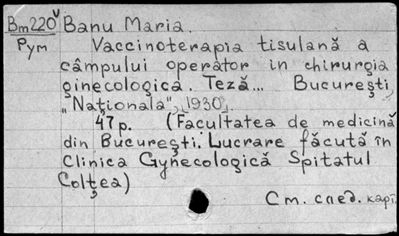 Bm220v Banu Maria.
Рум Vaccinoterapia tisulană a
câmpului operator in chirurgia
ginecologică. Teză... București,
„Naționala", 1930.
47 p. (Facultatea de medicină
din București. Lucrare făcută în
Clinica Gynecologică Spitatul
Colțea)
См. след. карт.